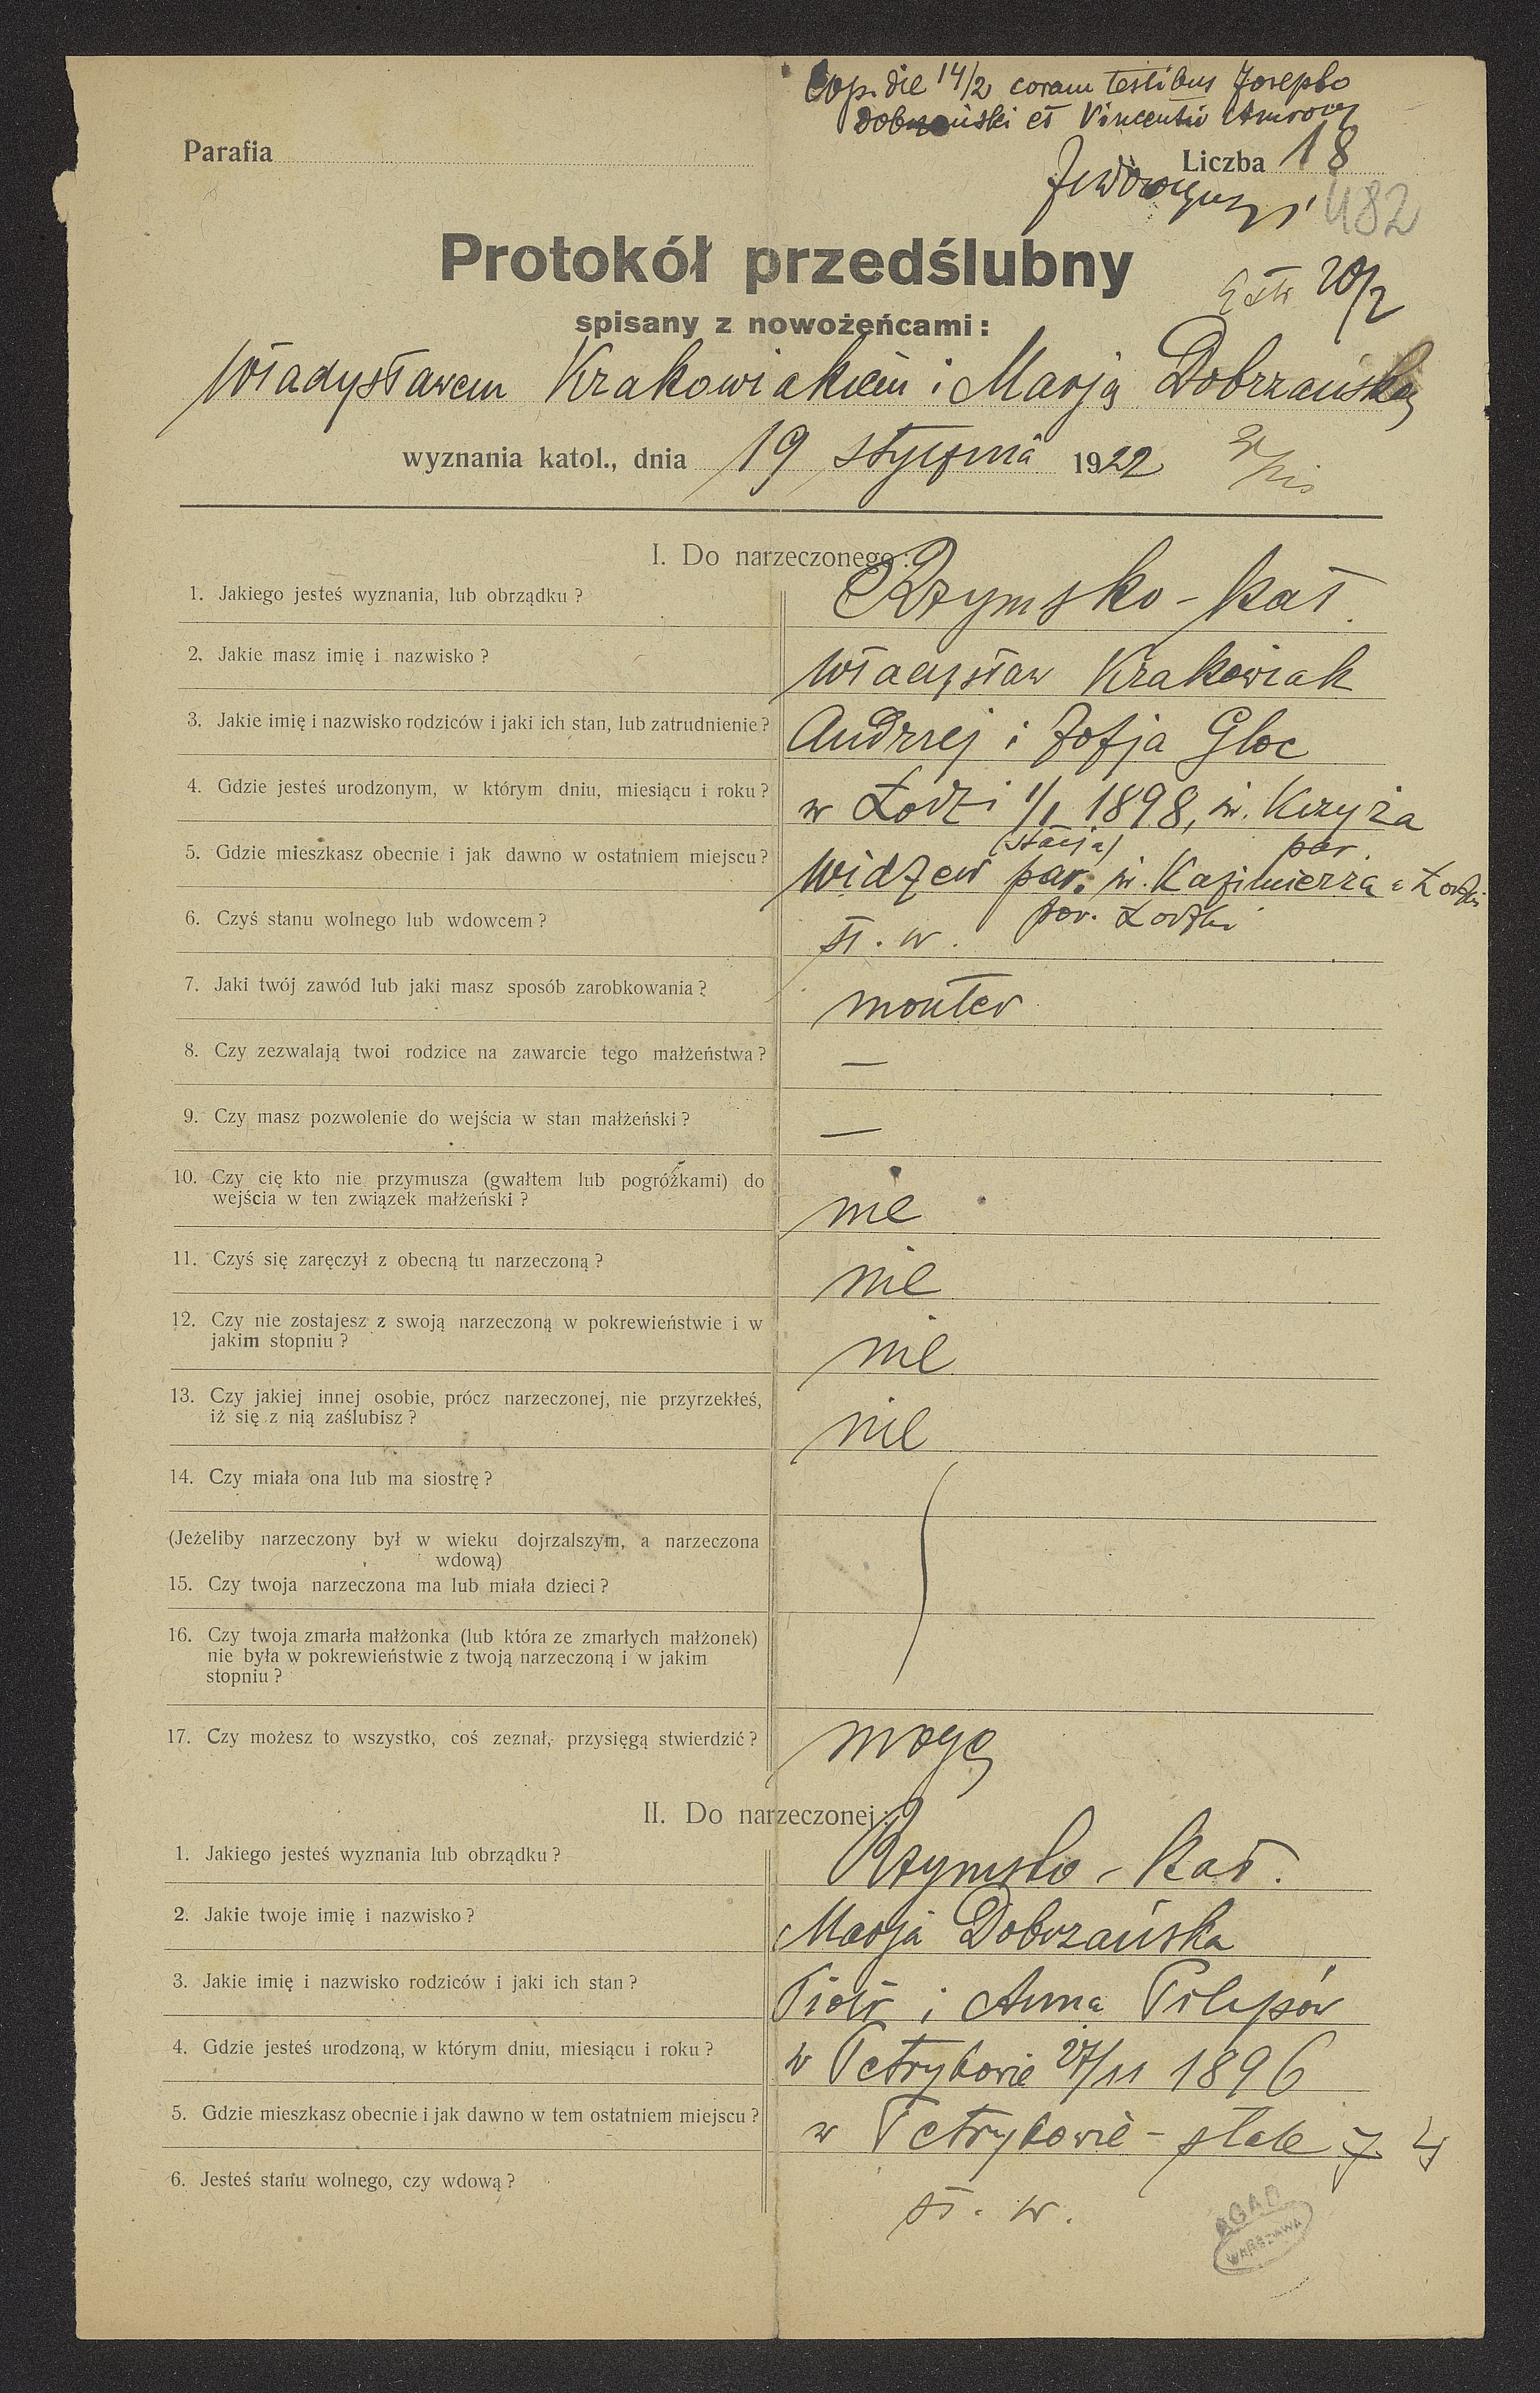 Cop. die 14/2 coram testibus Josepho
Dobrzański et Vincentio
Parafia
Liczba 18
482
20/2
Protokół przedślubny
spisany z nowożeńcami:
Władysławem Krakowiakiem i Marją Dobrzańską
wyznania katol., dnia 19 stycznia 1922
I. Do narzeczonego:
1. Jakiego jesteś wyznania, lub obrządku? Rzymsko-kat.
2. Jakie masz imię i nazwisko? Władysław Krakowiak
3. Jakie imię i nazwisko rodziców i jaki ich stan, lub zatrudnienie? Andrzej i Zofja Gloc
4. Gdzie jesteś urodzonym, w którym dniu, miesiącu i roku? w Łodzi 1/1 1898, św. Krzyża
par.
5. Gdzie mieszkasz obecnie i jak dawno w ostatniem miejscu? Widzew (stacja) par. św. Kazimierza
pow. Łódzki
6. Czyś stanu wolnego lub wdowcem? st. w.
7. Jaki twój zawód lub jaki masz sposób zarobkowania? monter
8. Czy zezwalają twoi rodzice na zawarcie tego małżeństwa? —
9. Czy masz pozwolenie do wejścia w stan małżeński? —
10. Czy cię kto nie przymusza (gwałtem lub pogróżkami) do
wejścia w ten związek małżeński? nie
11. Czyś się zaręczył z obecną tu narzeczoną? nie
12. Czy nie zostajesz z swoją narzeczoną w pokrewieństwie i w
jakim stopniu? nie
13. Czy jakiej innej osobie, prócz narzeczonej, nie przyrzekłeś,
iż się z nią zaślubisz? nie
14. Czy miała ona lub ma siostrę?
(Jeżeliby narzeczony był w wieku dojrzalszym, a narzeczona
wdową)
15. Czy twoja narzeczona ma lub miała dzieci?
16. Czy twoja zmarła małżonka (lub która ze zmarłych małżonek)
nie była w pokrewieństwie z twoją narzeczoną i w jakim
stopniu?
17. Czy możesz to wszystko, coś zeznał, przysięgą stwierdzić? mogę
II. Do narzeczonej:
1. Jakiego jesteś wyznania lub obrządku? Rzymsko-kat.
2. Jakie twoje imię i nazwisko? Marja Dobrzańska
3. Jakie imię i nazwisko rodziców i jaki ich stan? Piotr i Anna Filipów
4. Gdzie jesteś urodzoną, w którym dniu, miesiącu i roku? w Petrykowie 27/11 1896
5. Gdzie mieszkasz obecnie i jak dawno w tem ostatniem miejscu? w Petrykowie - stale
6. Jesteś stanu wolnego, czy wdową? st. w.
AGAD
WARSZAWA